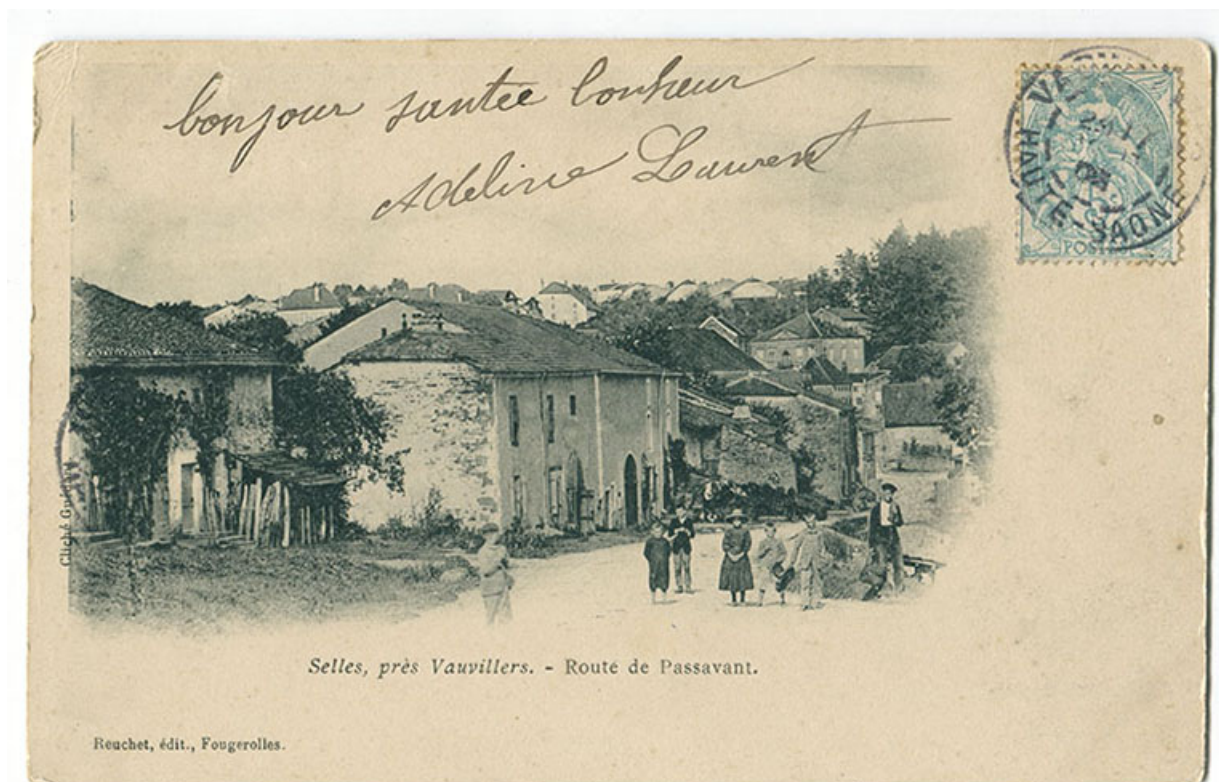 bonjour santée bonheur
Adeline Laurent
HAUTE-SAONE
POSTES
Cliché
Selles, près Vauvillers. - Route de Passavant.
Reuchet, édit., Fougerolles.